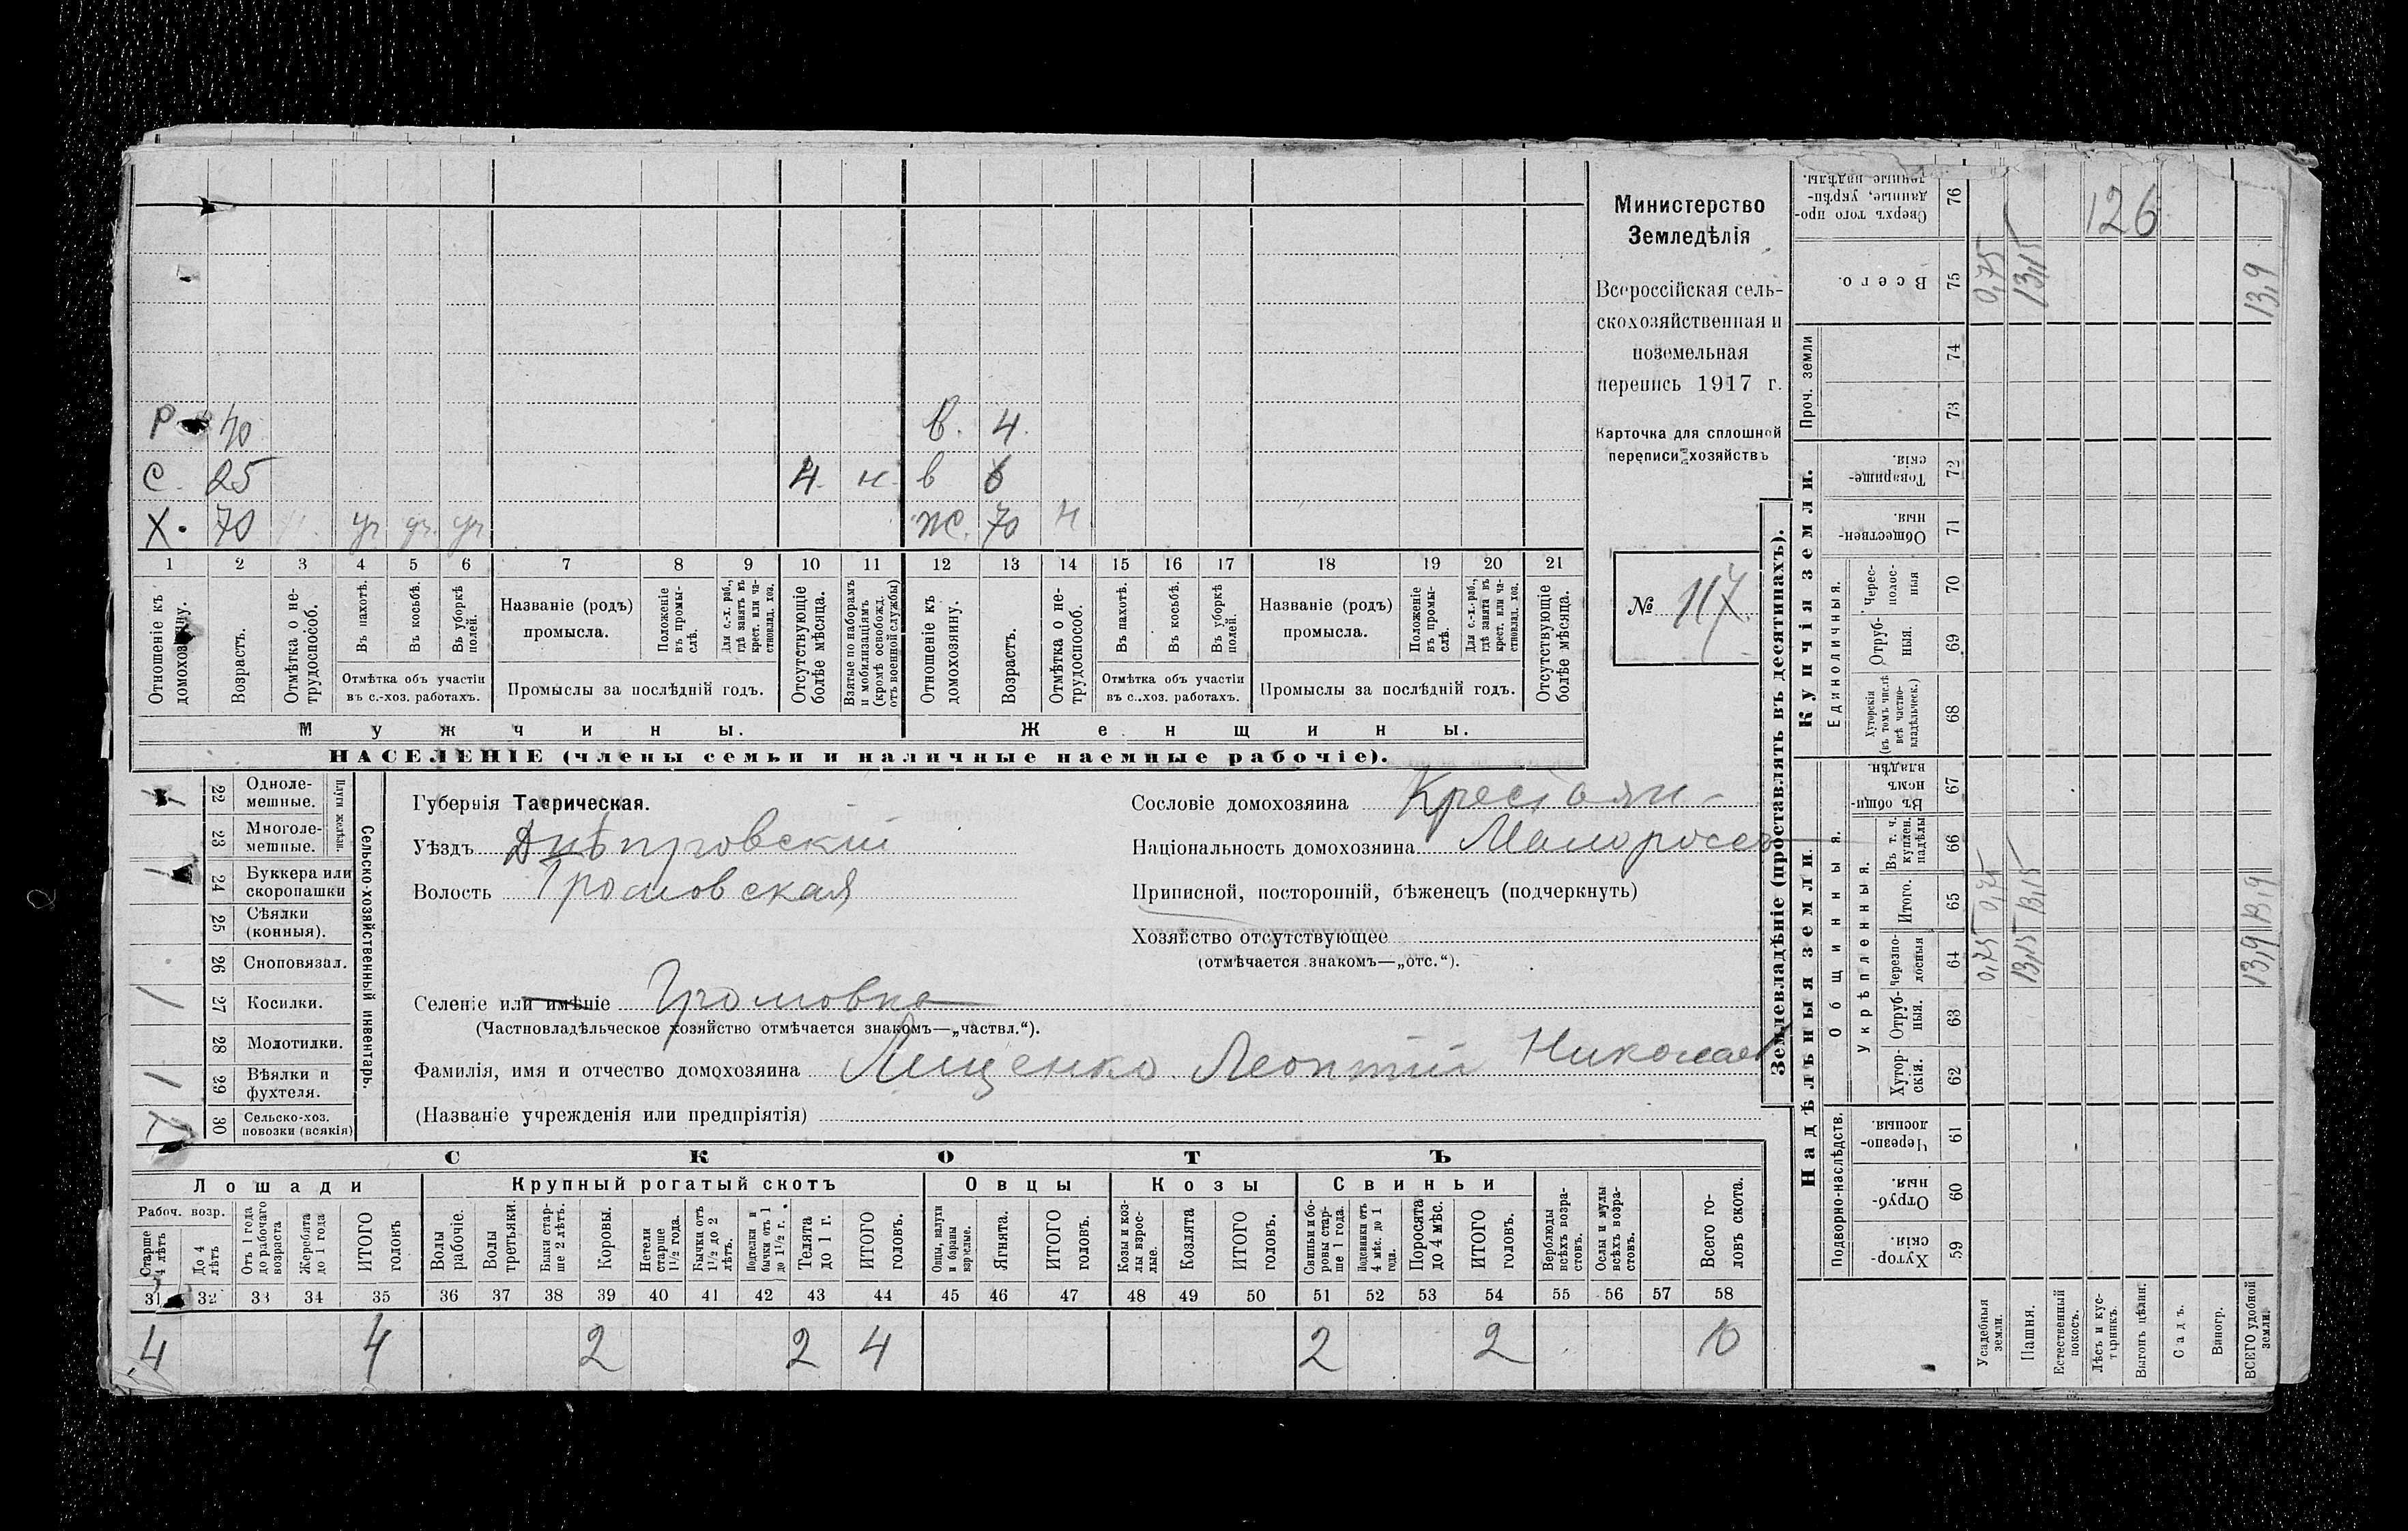 Министерство
Земледѣлія
Всероссійская сель-
скохозяйственная и
поземельная
перепись 1917 г.
Карточка для сплошной
переписи хозяйствъ
№ 117
126
Р 40 В. 4.
С. 25 4. н. в 6
Х. 70 уч уч. уч Ж. 70 н
1 2 3 4 5 6 7 8 9 10 11 12 13 14 15 16 17 18 19 20 21
Отношеніе къ домохозяину.
Возрастъ.
Отмѣтка о не-трудоспособ.
Въ пахотѣ.
Въ косьбѣ.
Въ уборкѣ полей.
Отмѣтка объ участіи
въ с.-хоз. работахъ.
Названіе (родъ)
промысла.
Положеніе въ промы-слѣ.
Для с.-х. раб., гдѣ занятъ въ крест. или ча-стновлад. хоз.
Промыслы за послѣдній годъ.
Отсутствующіе болѣе мѣсяца.
Взятые по наборамъ и мобилизаціямъ (кромѣ освобожд. отъ военной службы)
Отношеніе къ домохозяину.
Возрастъ.
Отмѣтка о не-трудоспособ.
Въ пахотѣ.
Въ косьбѣ.
Въ уборкѣ полей.
Отмѣтка объ участіи
въ с..хоз. работахъ.
Названіе (родъ)
промысла.
Положеніе въ промы-слѣ.
Для с.-х. раб., гдѣ занята въ крест. или ча-стновлад. хоз.
Промыслы за послѣдній годъ.
Отсутствующіе болѣе мѣсяца.
Мужчины. Женщины.
НАСЕЛЕНІЕ (члены семьи и наличные наемные рабочіе).
Сельско-хозяйственный инвентарь.
Плуги желѣзн.
22 Одноле-мешные.
23 Многоле-мешные.
1 24 Буккера или скоропашки
25 Сѣялки (конныя).
26 Сноповязал.
1 27 Косилки.
28 Молотилки.
1 29 Вѣялки и фухтеля.
30 Сельско-хоз. повозки (всякія)
Губернія Таврическая.
Уѣздъ Днѣпровскій
Волость Громовская
Сословіе домохозяина Крестьян
Національность домохозяина Малоросс
Приписной, посторонній, бѣженецъ (подчеркнуть)
Хозяйство отсутствующее
(отмѣчается знакомъ—„отс.“).
Селеніе или имѣніе Громовка
(Частновладѣльческое хозяйство отмѣчается знакомъ—„частвл.“).
Фамилія, имя и отчество домохозяина Лищенко Леонтій Николаев
(Названіе учрежденія или предпріятія)
СКОТЪ
Лошади Крупный рогатый скотъ Овцы Козы Свиньи
Рабоч. возр.
Старше 4 лѣтъ
До 4 лѣтъ
Отъ 1 года до рабочаго возраста
Жеребята до 1 года
ИТОГО головъ
Волы рабочіе.
Волы третьяки.
Быки стар-ше 2 лѣтъ.
Коровы.
Нетели старше 1½ года.
Бычки отъ 1½ до 2 лѣтъ.
Подтелки и бычки отъ 1 до 1½ г.
Телята до 1 г.
ИТОГО головъ.
Овцы, валухи и бараны взрослые.
Ягнята.
ИТОГО головъ.
Козы и коз-лы взрос-лые.
Козлята
ИТОГО головъ.
Свиньи и бо-ровы стар-ше 1 года.
Подсвинки отъ 4 мѣс. до 1 года.
Поросята до 4 мѣс.
ИТОГО головъ.
Верблюды всѣхъ возра-стовъ.
Ослы и мулы всѣхъ возра-стовъ.
Всего го-ловъ скота.
31 32 33 34 35 36 37 38 39 40 41 42 43 44 45 46 47 48 49 50 51 52 53 54 55 56 57 58
4 4 2 2 4 2 2 10
Землевладѣніе (проставлять въ десятинахъ).
Надѣльныя земли. Купчія земли.
Проч. земли
Подворно-наслѣдств.
Общинныя.
Укрѣпленныя.
Единоличныя.
Сверхъ того про-данные, укрѣп-ленные надѣлы. 76
Всего. 75 0,75 13,15 13,9
74
73
Товарище-скія. 72
Обществен-ныя. 71
Черес-полос-ныя 70
Отруб-ныя. 69
Хуторскія (въ томъ числѣ всѣ частно-владѣльческ.) 68
Въ общин-номъ владѣн. 67
Въ т. ч. куплен. надѣлы 66
Итого. 65 0,75 13,15 13,9
Черезпо-лосныя 64 0,75 13,15 13,9
Отруб-ныя. 63
Хутор-скія. 62
Черезпо-лосныя. 61
Отруб-ныя. 60
Хутор-скія. 59
Усадебныя земли.
Пашня.
Естественный покосъ.
Лѣсъ и кус-тарникъ.
Выгонъ цѣлин.
Садъ.
Виногр.
ВСЕГО удобной земли.